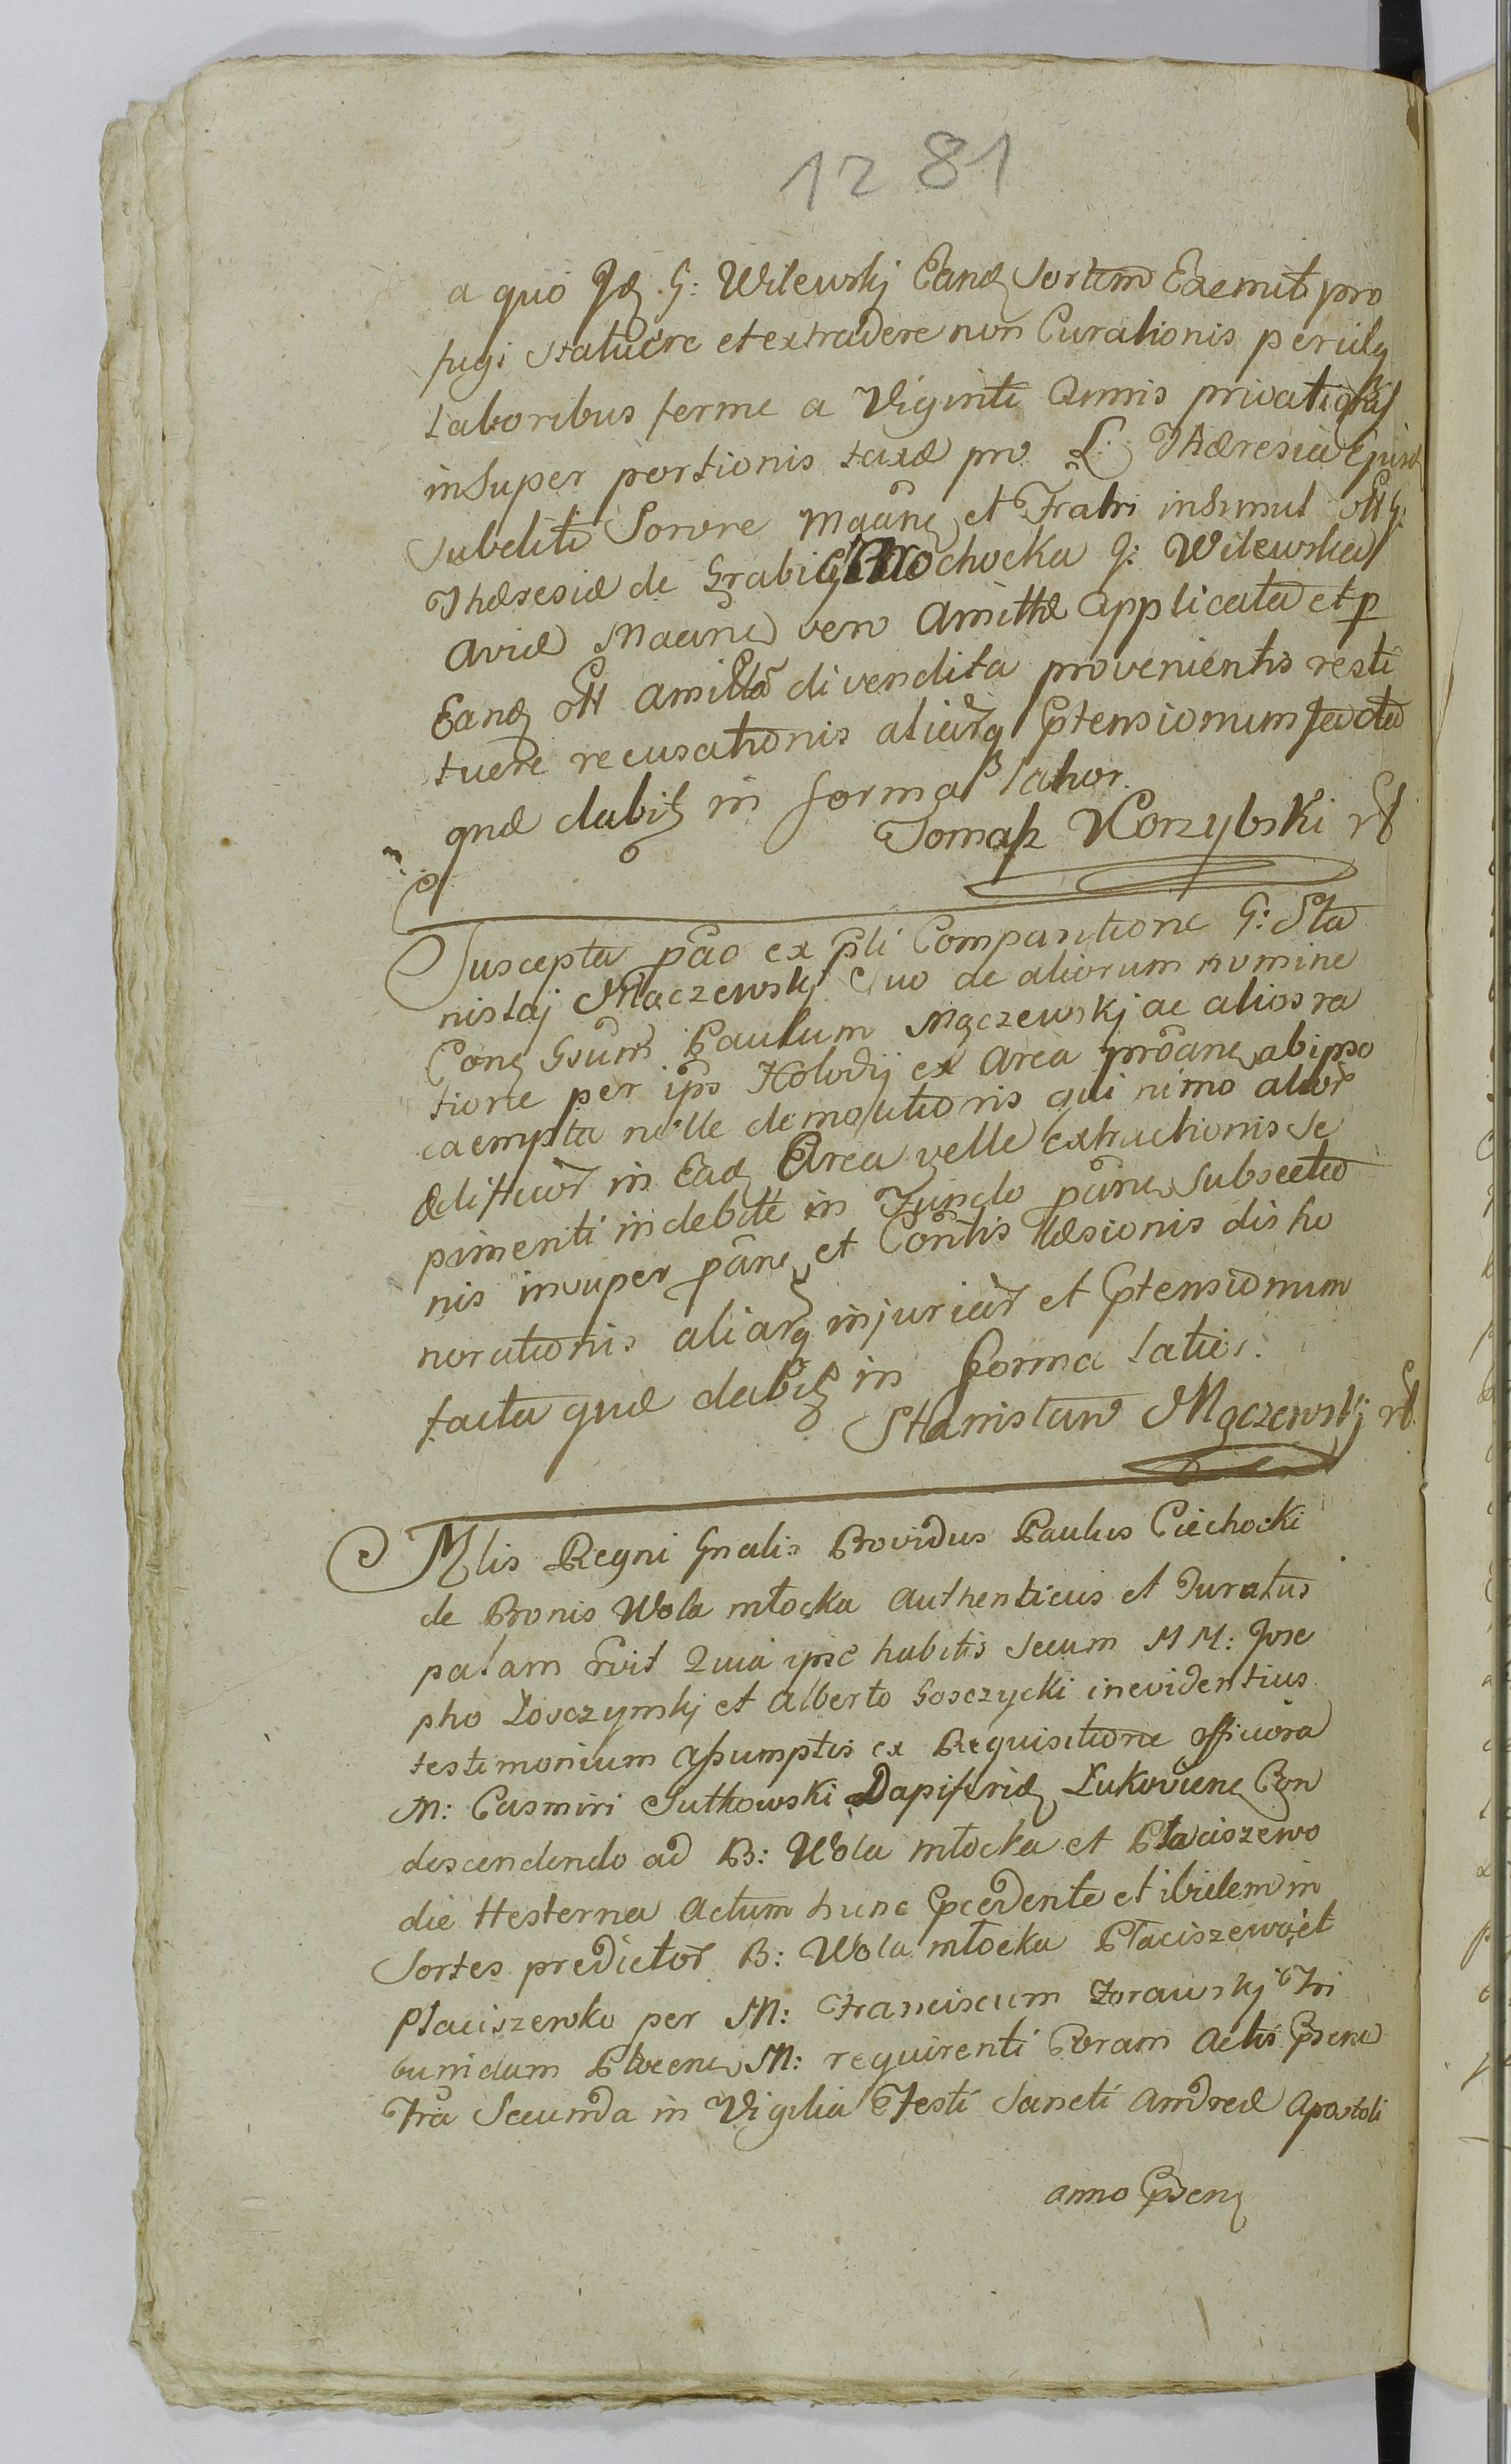 1281
a quo Id. G: Wilewskj Eand Sortem Exemit pro
fugi statuere et extradere non Curationis per ilq
Laboribus ferme a Viginti Annis privationis
inSuper portionis taxæ pro L: Theresia
subditi Sorore Maane et Fratri insimul olt G:
Theresiæ de Grabie Grochocka G: Wilewska
aviæ Maane vero Amittæ applicata et p
Eand olt amitta divendita provenientis resti
tuere recusationis aliarq Ptensionum facta
quæ dabit in forma latior.
Tomasz Korzybski
Suscepta pao ex pli Comparitione G: Sta
nislaj Mączewskj Suo ac aliorum nomine
Cong Gsum Paulum Mączewskj ac alios ra
tione per ips Holodij ex Area proane ab ipso
exempta nolle demolitionis qui nimo alior
ædificior in Ead Area velle extructionis Se
pimenti indebite in Fundo pane subsectio
nis insuper pane et Contis læsionis disho
norationis aliarq injuriar et Ptensionum
facta quæ dabit in forma latior.
Stanisław Mączewskj
Mlis Regni Gnalis Providus Paulus Ciechocki
de Bonis Wola młocka authenticus et Juratus
palam rvit Quia ipse habitis secum MM: Jose
pho Łosczynskj et Alberto Gosczycki in evidentius
testimonium assumptis ex Requisitione officiosa
M: Casmiri Sutkowski Dapiferid Łukoviene Con
descendendo ad B: Wola młocka et Płaciszewo
die Hesterna Actum hunc Pcedente et ibidem in
Sortes predictor B: Wola młocka Płaciszewo et
Płaciszewko per M: Franciscum Zorawskj Tri
bunidam Płocene M: requirenti Coram Actis Psene
Fra Secunda in Vigilia Festi Sancti Andreæ Apostoli
anno Psene